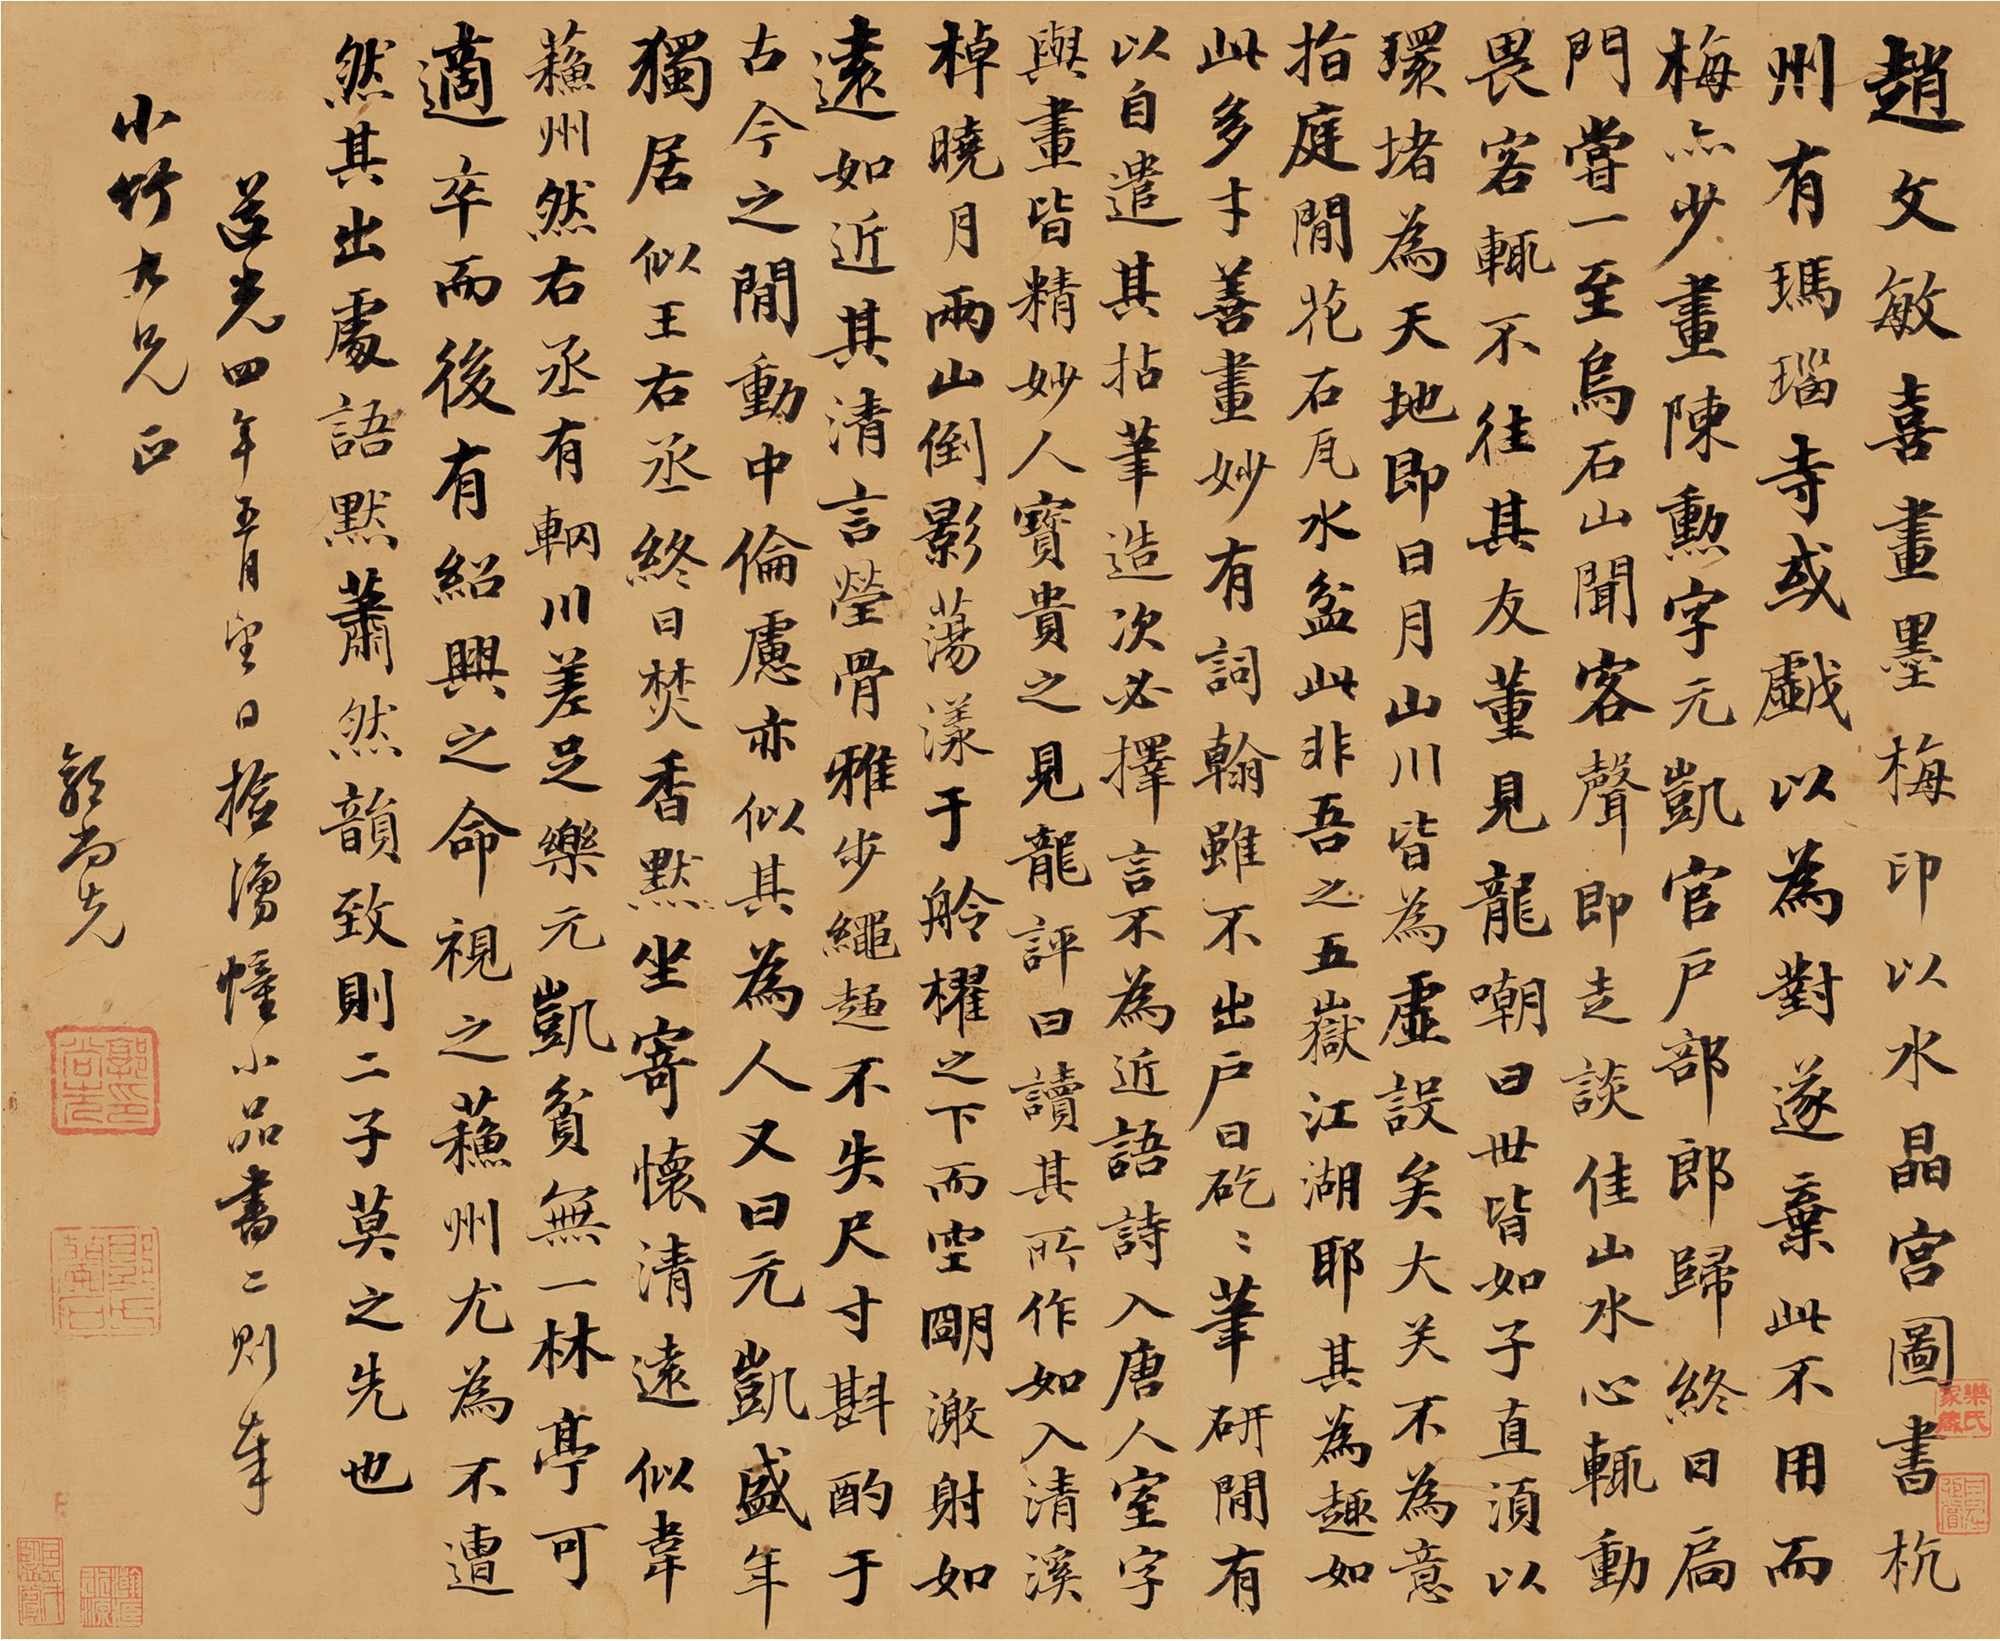 趙文敏喜畫墨梅印以水晶宮圖書杭
州有瑪瑙寺或戲以為對遂棄此不用而
梅亦少畫陳勲字元凱官戶部郎歸終日扃
門嘗一至烏石山聞客聲即走談佳山水心輒動
畏客輒不往其友董見龍嘲曰世皆如子直須以
環堵為天地即日月山川皆為虛設矣大笑不為意
指庭閒花石瓦水盆此非吾之五嶽江湖耶其為趣如
此多才善畫妙有詞翰雖不出戶曰矻〻筆研閒有
以自遣其拈筆造次必擇言不為近語詩入唐人室字
與畫皆精妙人寶貴之見龍評曰讀其所作如入清溪
棹曉月兩山倒影蕩漾于舲櫂之下而空明激射如
遠如近其清言瑩骨雅步繩趨不失尺寸斟酌于
古今之閒動中倫慮亦似其為人又曰元凱盛年
獨居似王右丞終日焚香默坐寄懷清遠似韋
蘇州然右丞有輞川差足樂元凱貧無一林亭可
適卒而後有紹興之命視之蘇州尤為不遭
然其出處語默蕭然韻致則二子莫之先也
道光四年五月望日撿湧幢小品書二則奉
小竹大兄正
郭尚先
郭尚先印
樂氏家藏